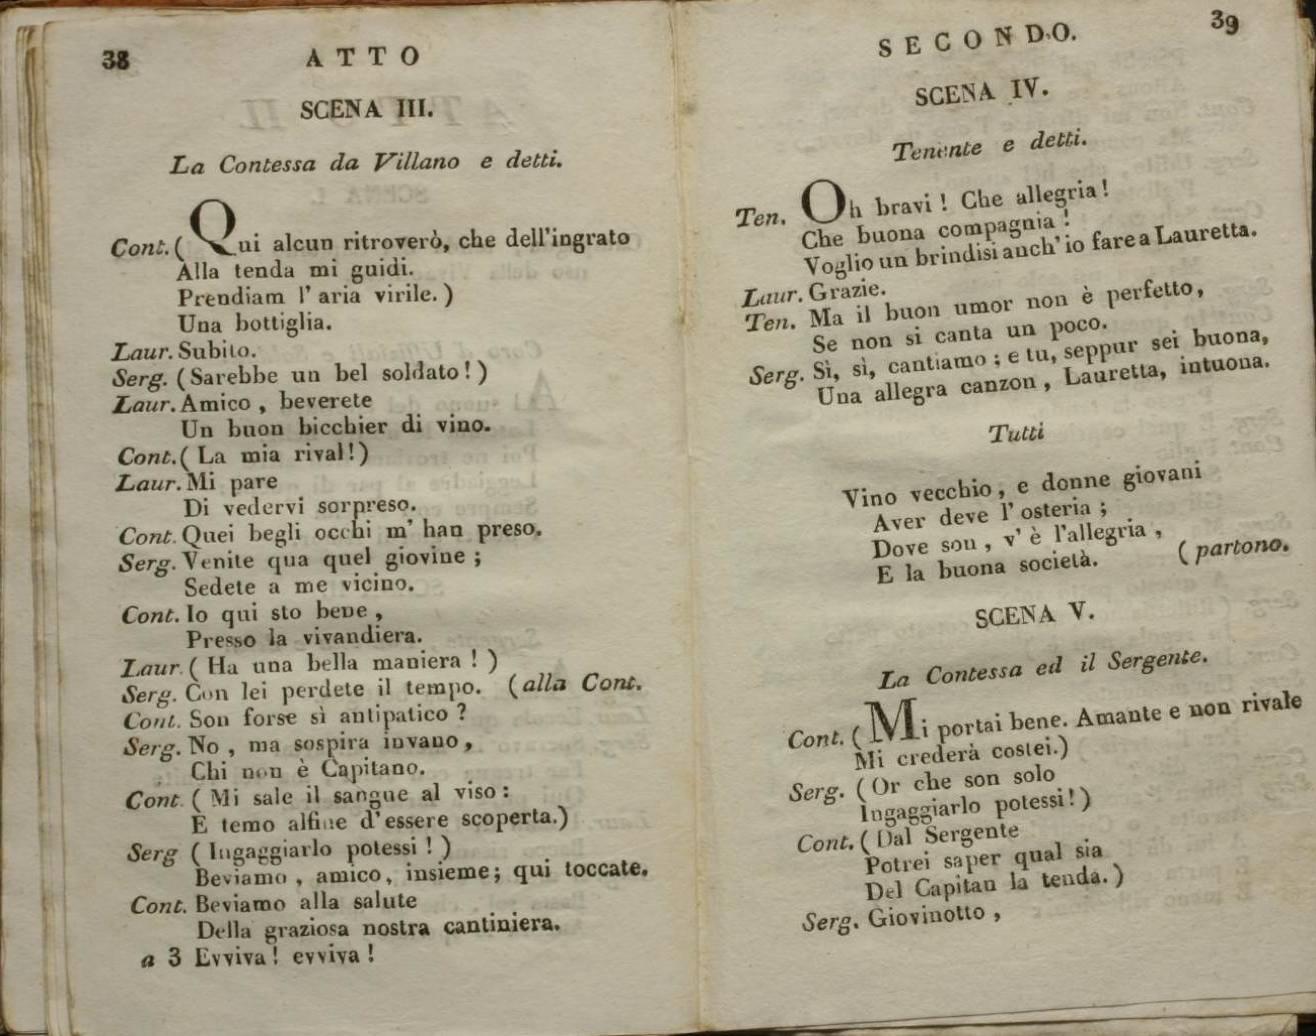 38
ATTO
SCENA III.
La Contessa da Villano e detti.
Cont. ( Qui alcun ritroverò, che dell'ingrato
Alla tenda mi guidi.
Prendiam l' aria virile. )
Una bottiglia.
Laur. Subito.
Serg. ( Sarebbe un bel soldato ! )
Laur. Amico , beverete
Un buon bicchier di vino.
Cont. ( La mia rival! )
Laur. Mi pare
Di vedervi sorpreso.
Cont. Quei begli occhi m' han preso.
Serg. Venite qua quel giovine ;
Sedete a me vicino.
Cont. Io qui sto bene ,
Presso la vivandiera.
Laur. ( Ha una bella maniera ! )
Serg. Con lei perdete il tempo. ( alla Cont.
Cont. Son forse sì antipatico ?
Serg. No , ma sospira invano ,
Chi non è Capitano.
Cont. ( Mi sale il sangue al viso :
E temo alfine d' essere scoperta. )
Serg ( Ingaggiarlo potessi ! )
Beviamo , amico, insieme; qui toccate.
Cont. Beviamo alla salute
Della graziosa nostra cantiniera.
a 3 Evviva ! evviva !
SECONDO.
39
SCENA IV.
Tenente e detti.
Ten. Oh bravi ! Che allegria !
Che buona compagnia !
Voglio un brindisi anch' io fare a Lauretta.
Laur. Grazie.
Ten. Ma il buon umor non è perfetto,
Se non si canta un poco.
Serg. Sì, sì, cantiamo ; e tu, seppur sei buona,
Una allegra canzon , Lauretta, intuona.
Tutti
Vino vecchio , e donne giovani
Aver deve l' osteria ;
Dove son , v' è l'allegria ,
E la buona società. ( partono.
SCENA V.
La Contessa ed il Sergente.
Cont. ( Mi portai bene. Amante e non rivale
Mi crederà costei. )
Serg. ( Or che son solo
Ingaggiarlo potessi! )
Cont. ( Dal Sergente
Potrei saper qual sia
Del Capitan la tenda. )
Serg. Giovinotto ,